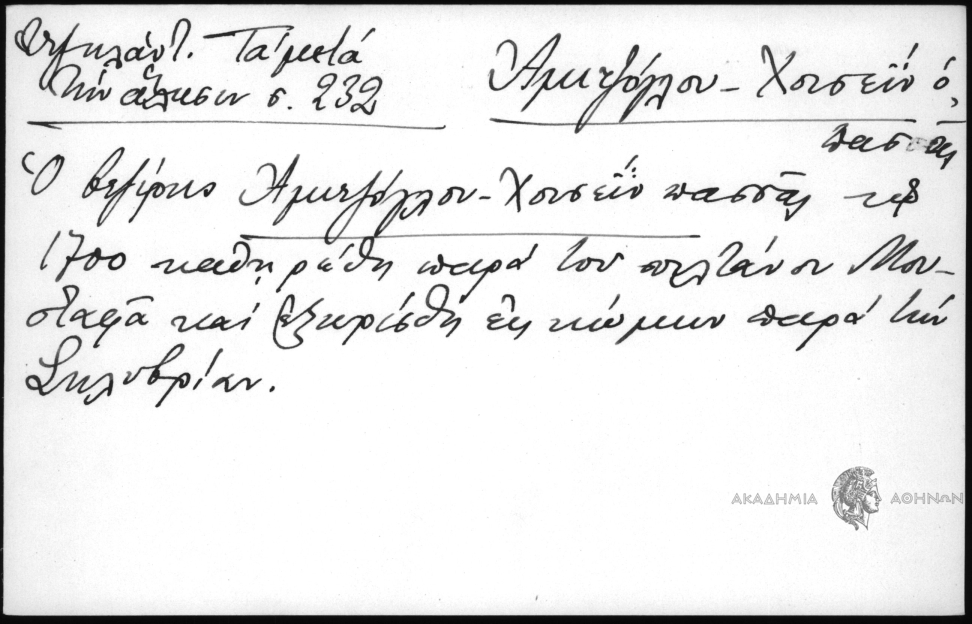 Υψηλάντ. Τά μετά
τήν ἅλωσιν σ. 232
Ἀμετζόγλου - Χουσεΐν ὁ,
πασσᾶς
Ὁ βεζίρης Ἀμετζόγλου - Χουσεΐν πασσᾶς τῷ
1700 καθῃρέθη παρά του σουλτάνου Μου-
σταφᾶ καί ἐξωρίσθη εἰς κώμην παρά τήν
Σηλυβρίαν.
ΑΚΑΔΗΜΙΑ ΑΘΗΝΩΝ